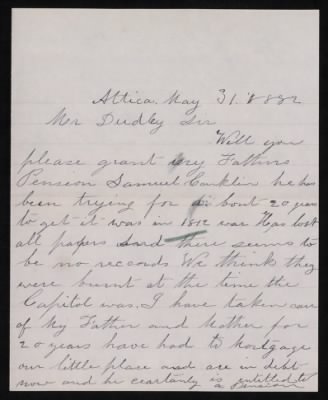 Attica. May 31. 1882
Mr Dudley Sir
Will you
please grant my Fathers
Pension Samuel Conklin he has
been trying for a bout 20 years
to get it was in 1812 war Has lost
all papers and there seems to
be no records We think they
were burnt at the time the
Capitol was. I have taken care
of My Father and Mother for
20 years have had to Mortgage
our little place and are in debt
now and he ceartanly is entitled to
a Pension